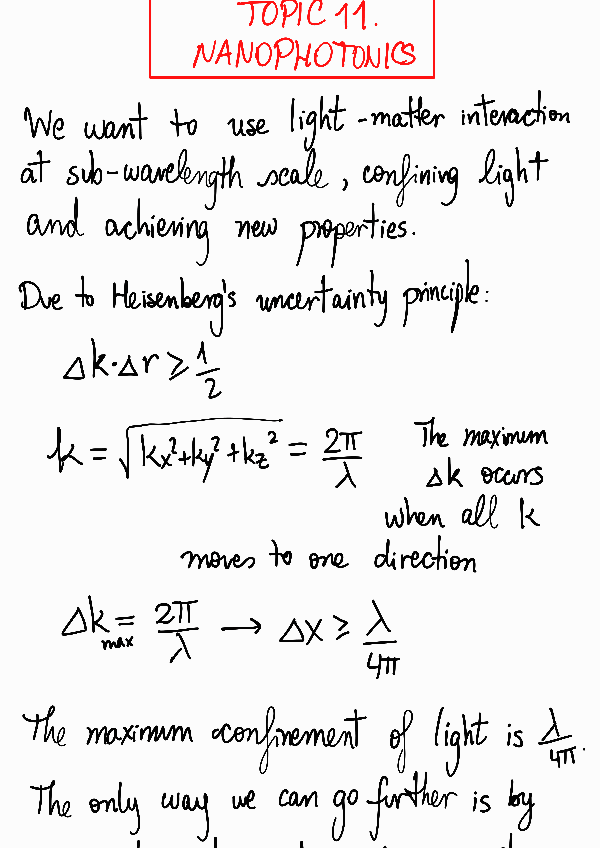 TOPIC 11.
NANOPHOTONICS
We want to use light-matter interaction
at sub-wavelength scale, confining light
and achieving new properties.
Due to Heisenberg's uncertainty principle:
Δk·Δr ≥ 1/2
k = √(kx²+ky²+kz²) = 2π/λ The maximum
Δk occurs
when all k
moves to one direction
Δk max = 2π/λ → Δx ≥ λ/4π
The maximum confinement of light is λ/4π.
The only way we can go further is by